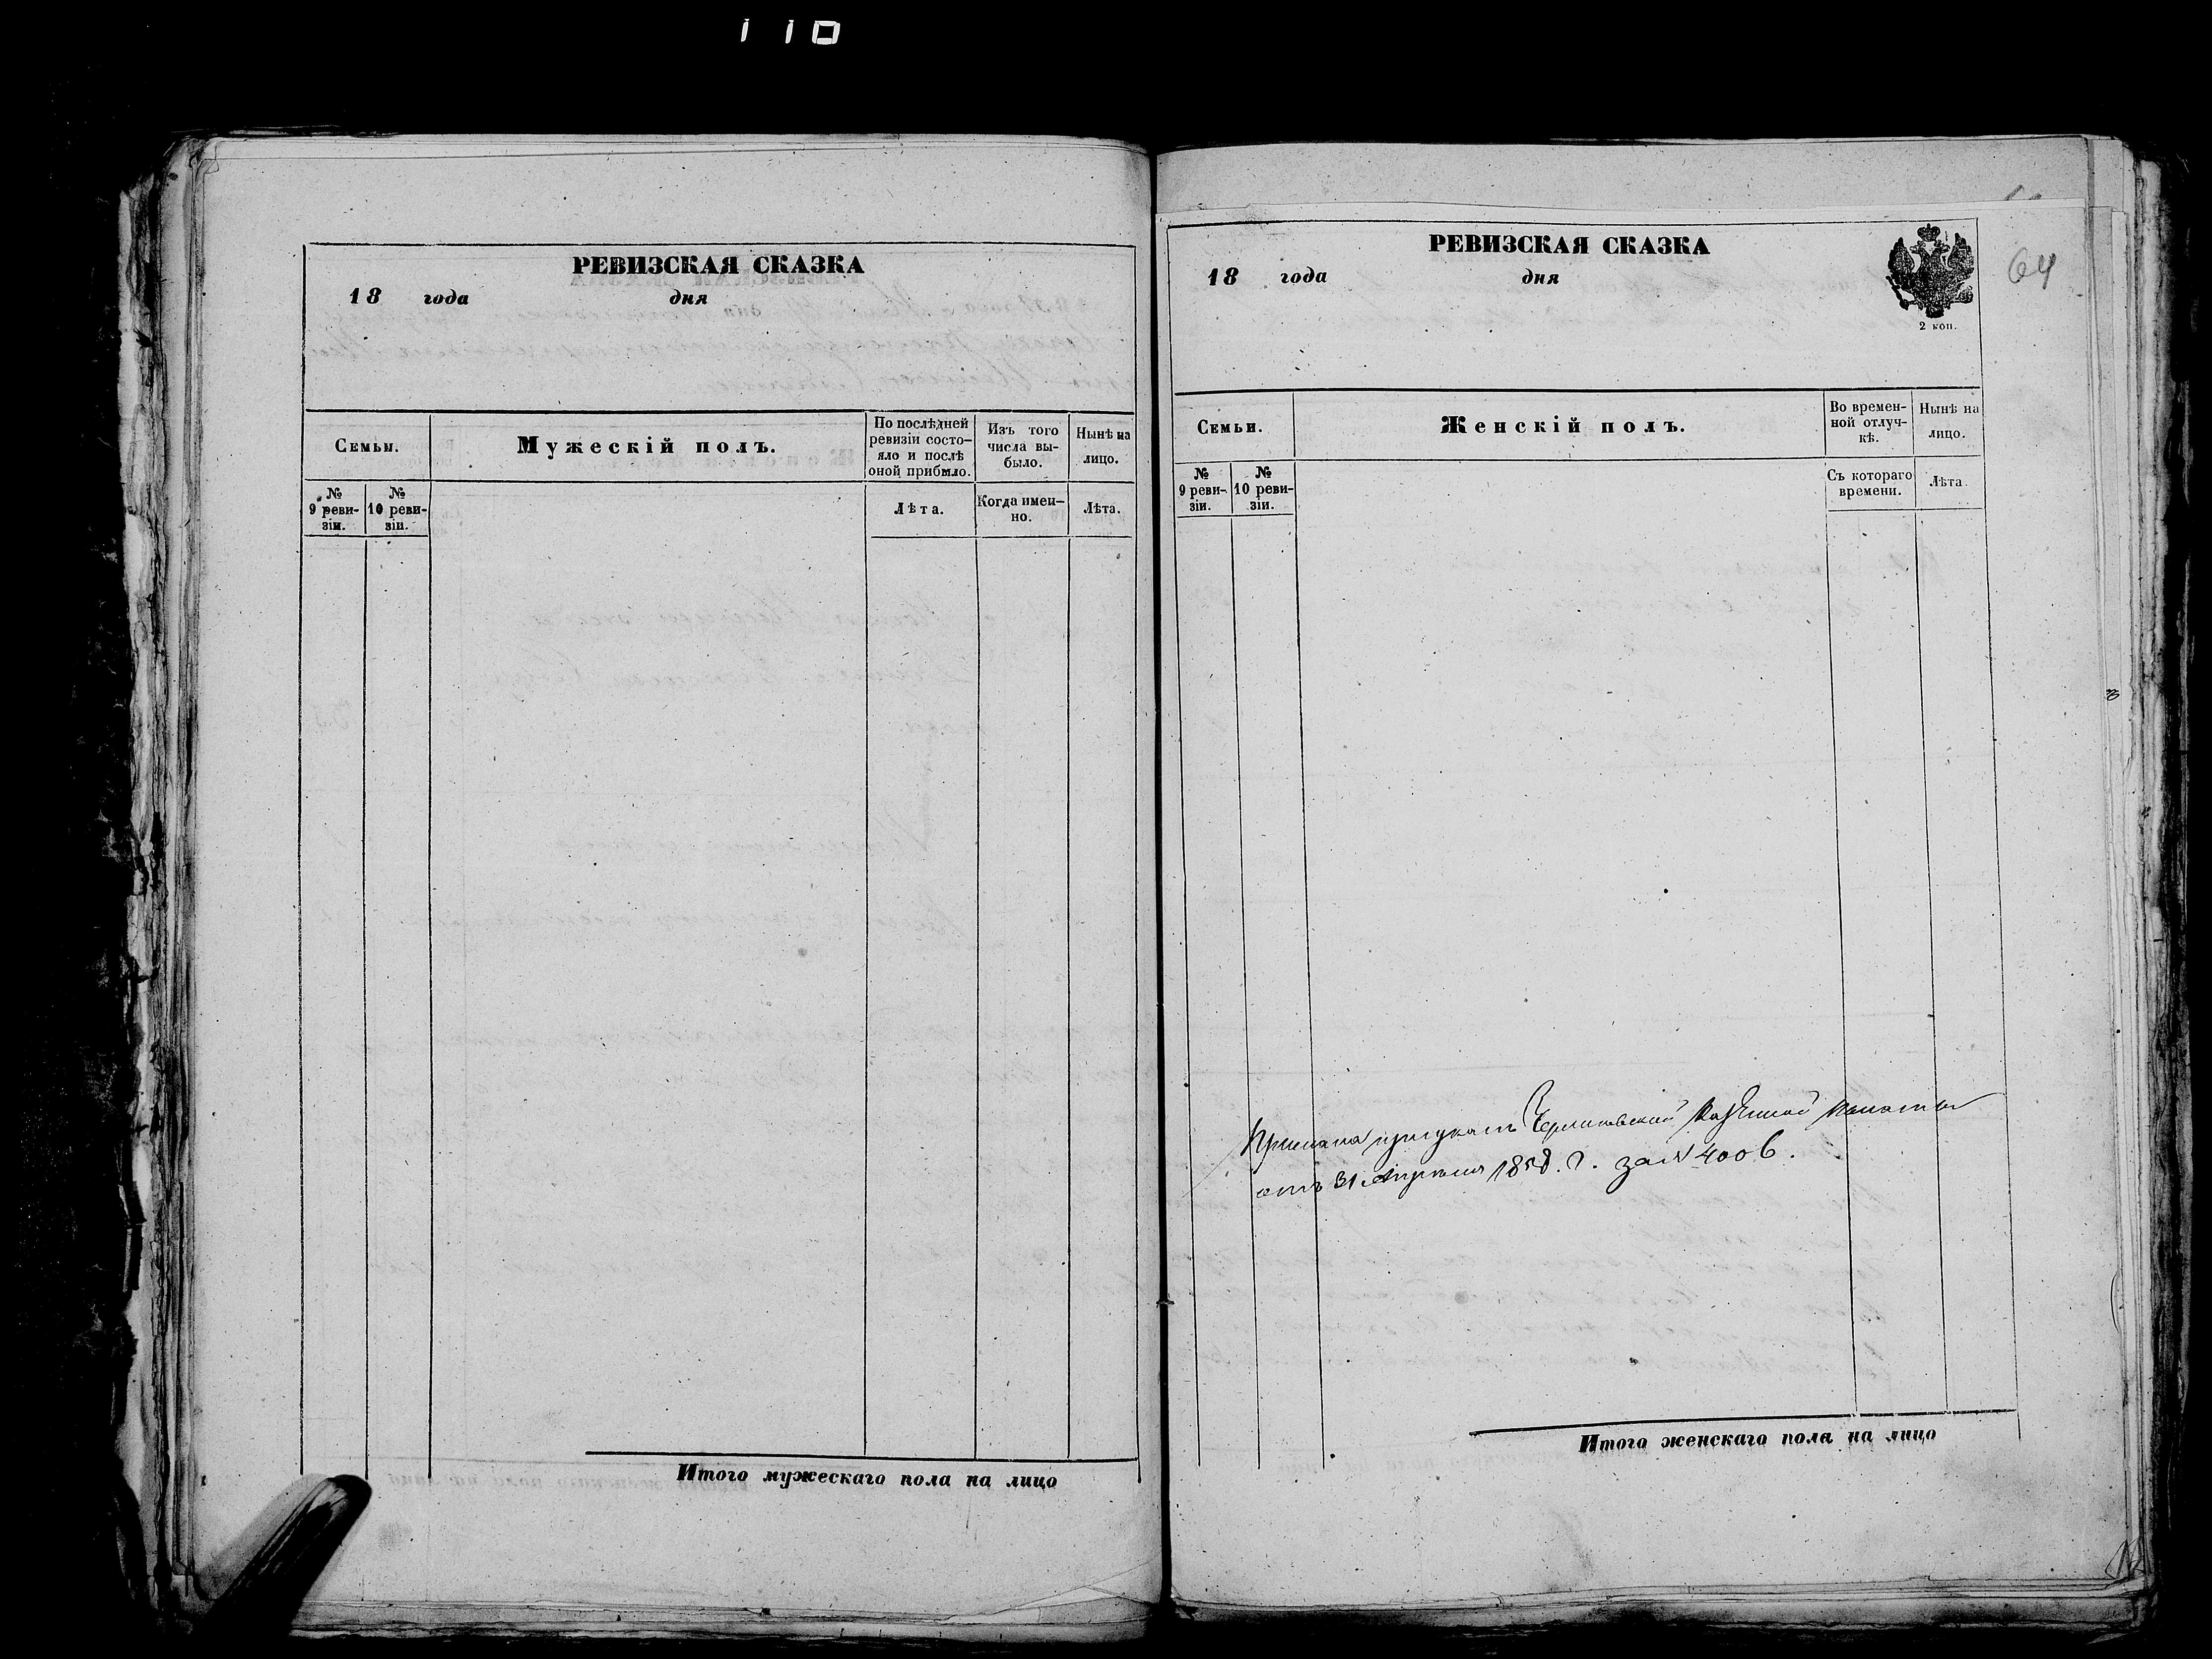 110
РЕВИЗСКАЯ СКАЗКА
18 года дня
Семьи.
Мужескій полъ.
По послѣдней ревизіи состо-
яло и послѣ
оной прибыло.
Изъ того
числа вы-
было.
Нынѣ на
лицо.
№
9 реви-
зіи.
№
10 реви-
зіи.
Лѣта.
Когда имен-
но.
Лѣта.
Итого мужескаго пола на лицо
РЕВИЗСКАЯ СКАЗКА
18 года дня
2 коп.
64
Семьи.
Женскій полъ.
Во времен-
ной отлуч-
кѣ.
Нынѣ на
лицо.
№
9 реви-
зіи.
№
10 реви-
зіи.
Съ котораго
времени.
Лѣта.
Казенной палаты
отъ 31 Апреля 1858. г. за № 4006.
Итого женскаго пола на лицо